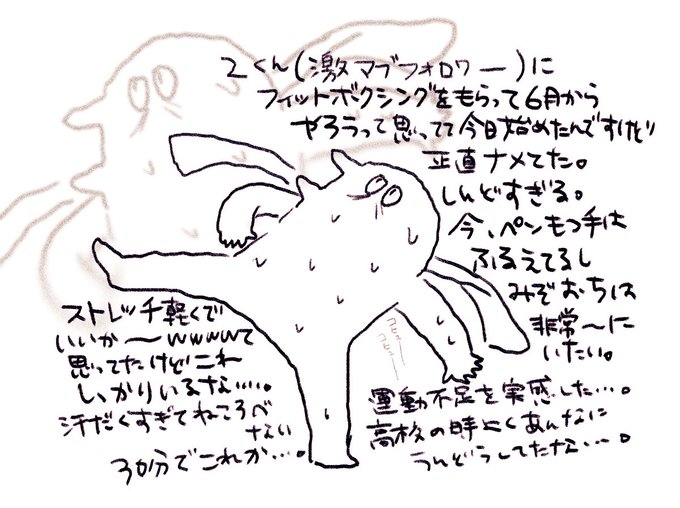 Zくん(激マブフォロワー)に
フィットボクシングをもらって6月から
やろうって思ってて今日始めたんですけど
正直ナメてた。
しんどすぎる。
今、ペンもつ手は
ふるえてるし
みぞおちは
非常〜に
いたい。
ストレッチ軽くで
いいか〜wwwwって
思ってたけどこれ
しっかりいるな…。
汗だくすぎてねころべ
ない
30分でこれか…。
運動不足を実感した…。
高校の時よくあんなに
うんどうしてたな…。